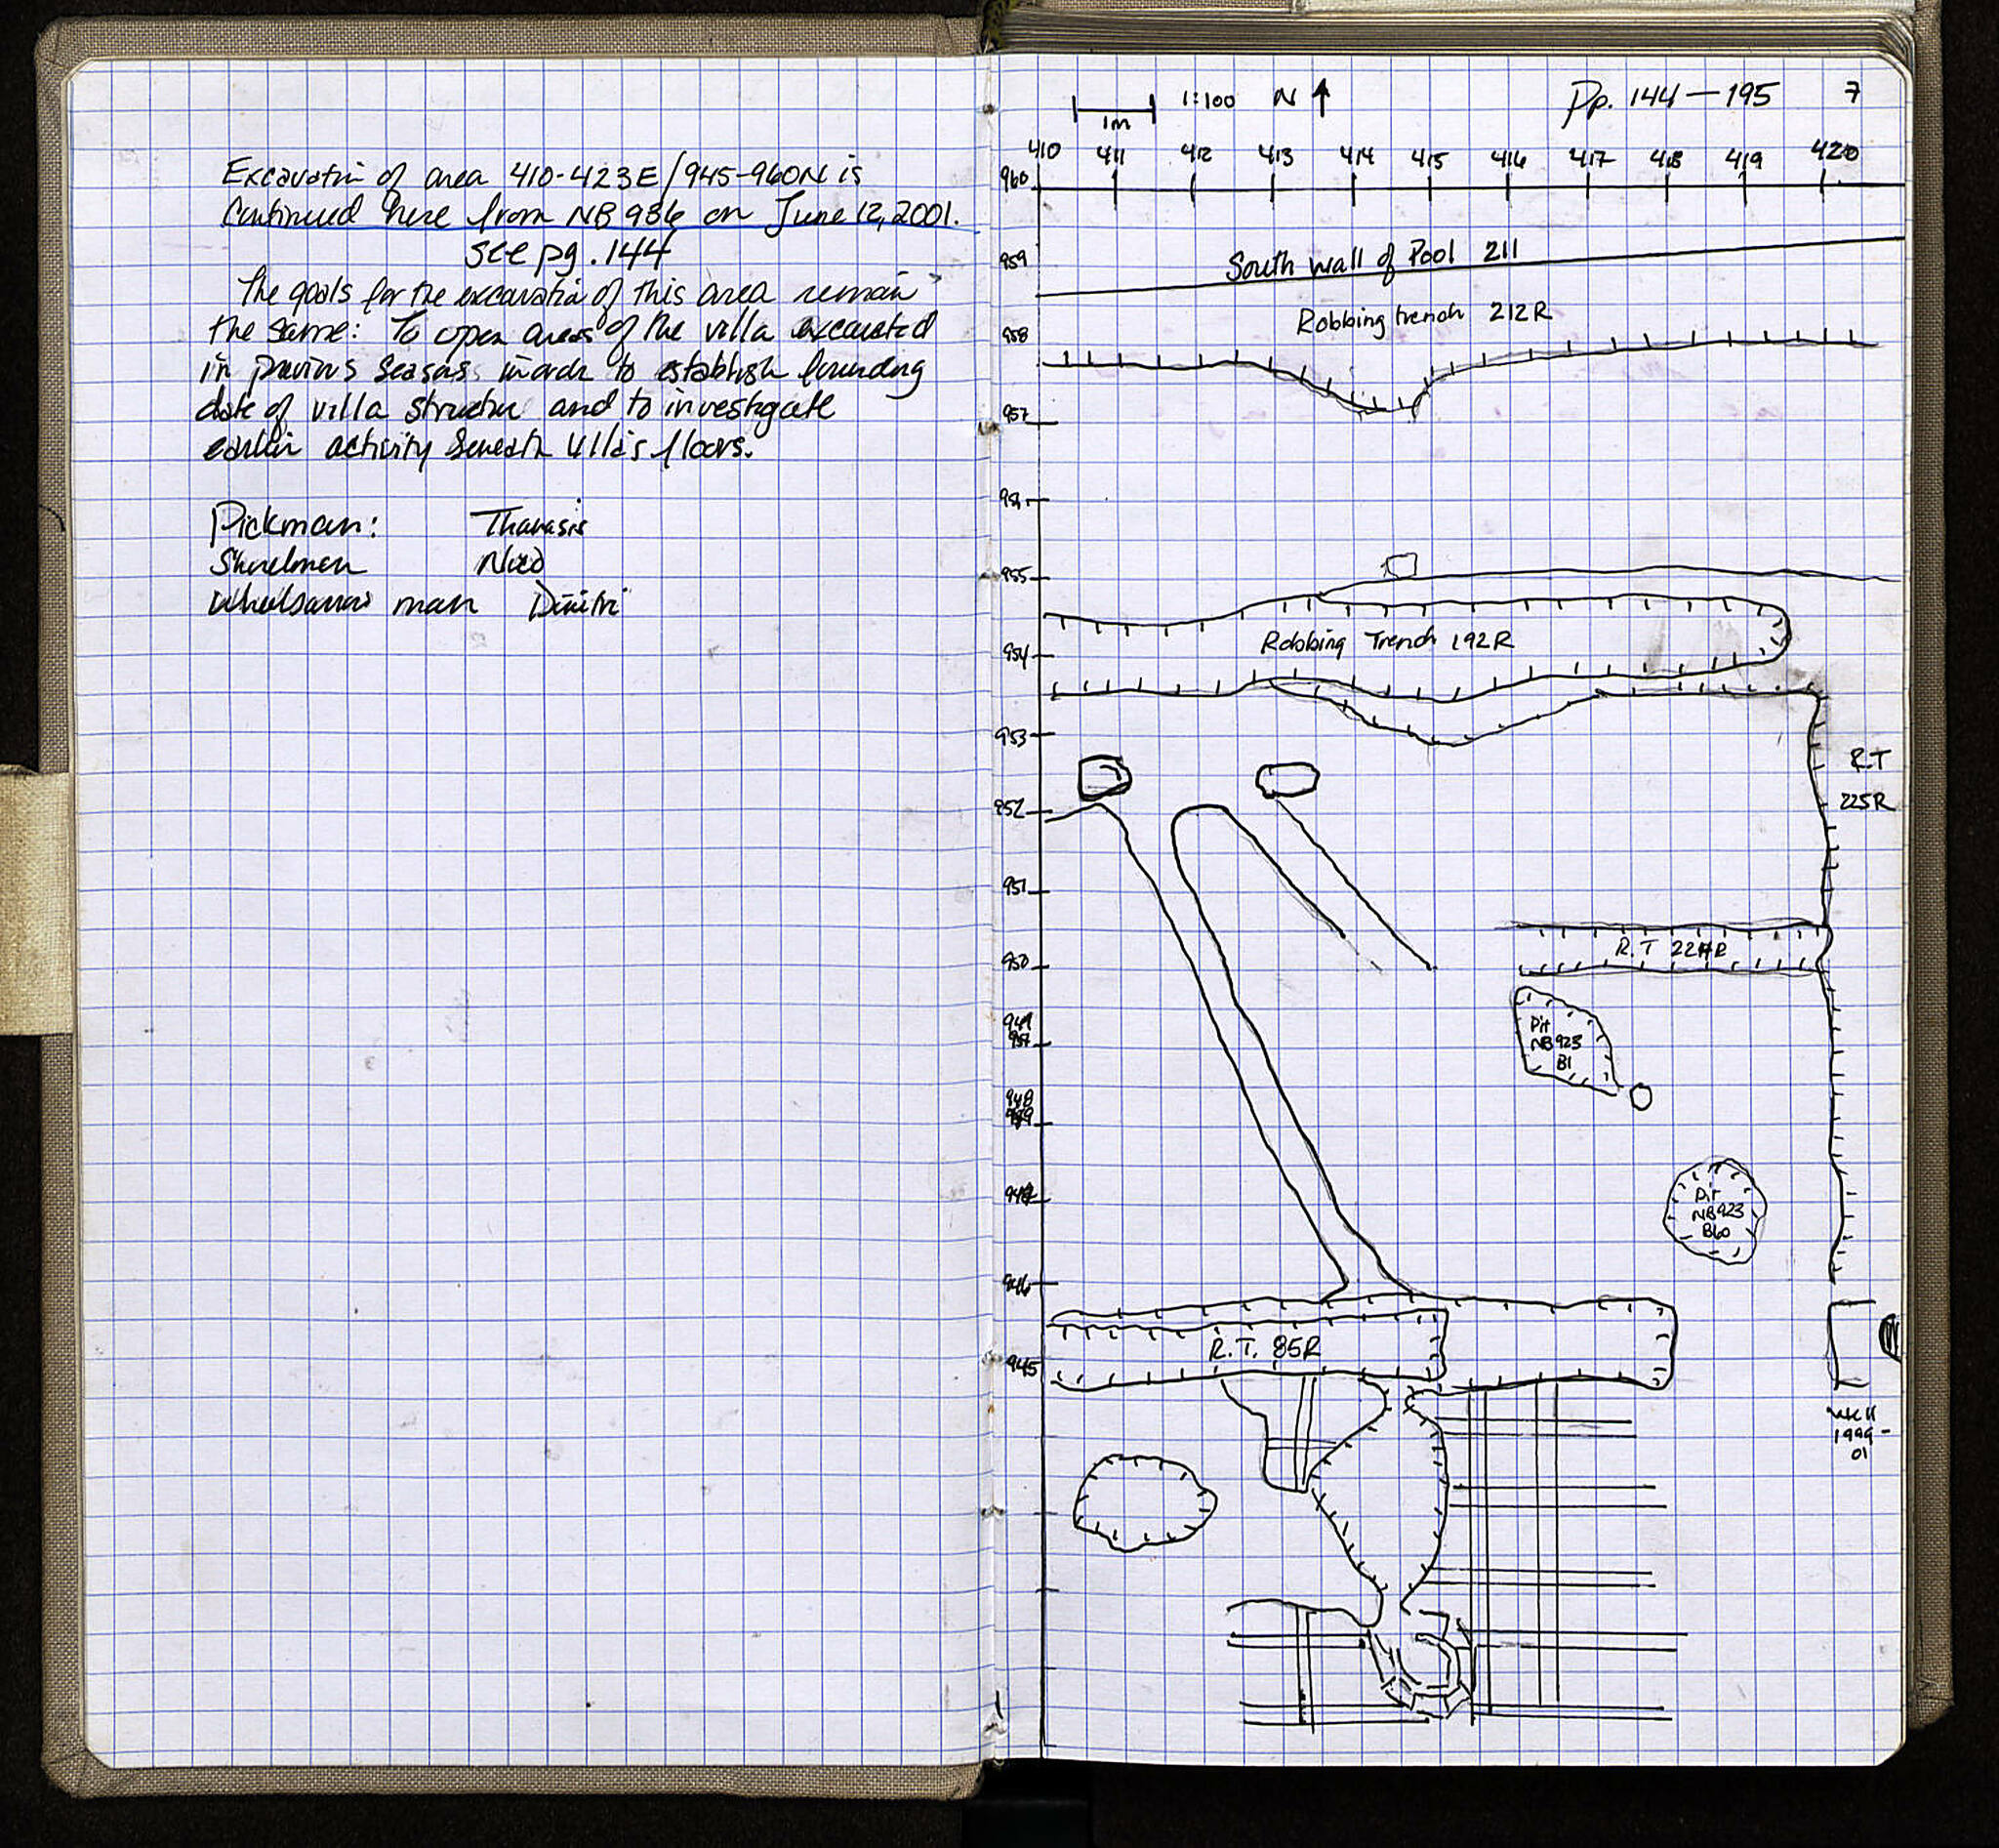 Excavation of area 410-423E/945-960N is
Continued here from NB 936 on June 12, 2001.
see pg. 144
The goals for the excavation of this area remain
the same: To open areas of the villa excavated
in previous seasons in order to establish founding
date of villa structure and to investigate
earlier activity beneath villa's floors.
Pickman: Thanasis
Shovelmen Niko
Wheelbarrow man Dimitri
1:100 N Pp. 144-195 7
1m
410 411 412 413 414 415 416 417 418 419 420
960
959
South wall of Pool 211
Robbing trench 212R
958
957
956
955
Robbing Trench 192R
954
953
R.T
225R
952
951
R.T 224R
950
949
957
Pit
NB 923
B1
948
947
Pit
NB 923
B60
946
R.T. 85R
945
1999-
01